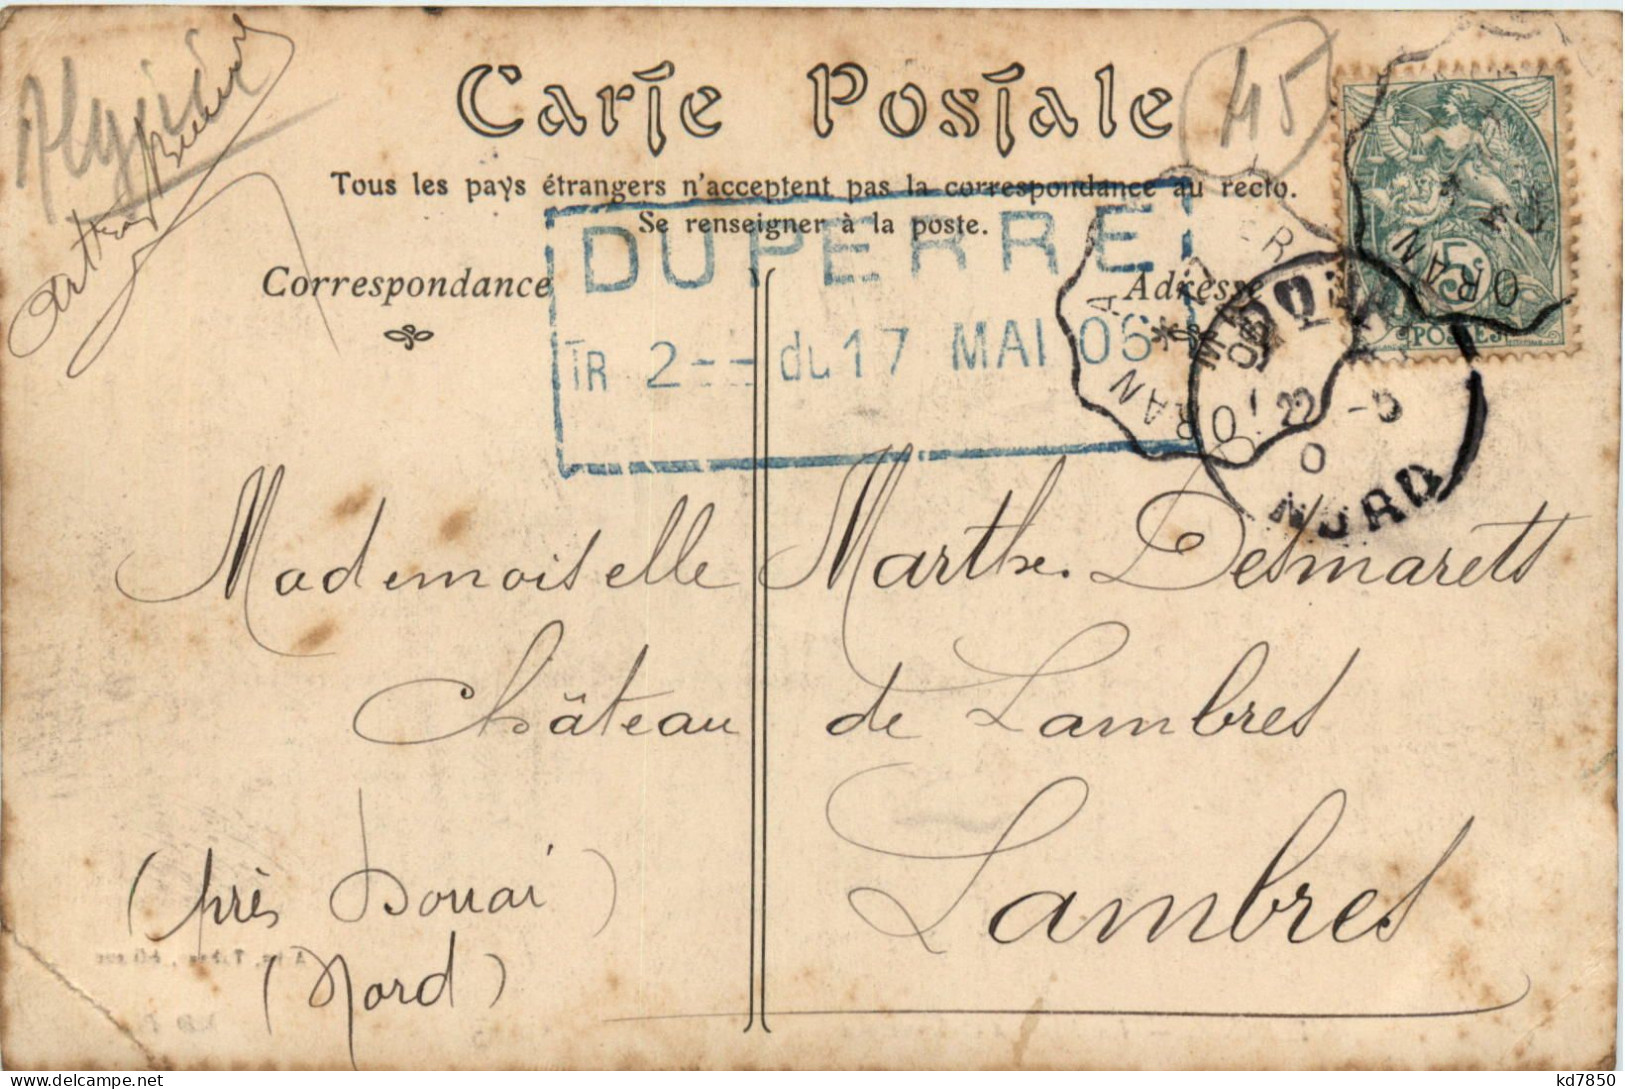 Algérie
45
Carte Postale
Tous les pays étrangers n'acceptent pas la correspondance au recto.
Se renseigner à la poste.
DUPERRE
TR 2 -- du 17 MAI 06
Correspondance
Adresse
ORAN
ORAN
5c
POSTES
22 -5
0
NORD
Mademoiselle Marthe Desmarets
Château de Lambres
Lambres
(près Douai)
(Nord)
kd7850